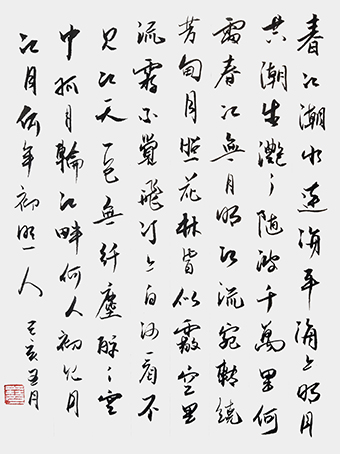 春江潮水連海平海上明月
共潮生灩灩隨波千萬里何
處春江無月明江流宛轉繞
芳甸月照花林皆似霰空里
流霜不覺飛汀上白沙看不
見江天一色無纤塵皎皎空
中孤月輪江畔何人初見月
江月何年初照人
己亥月